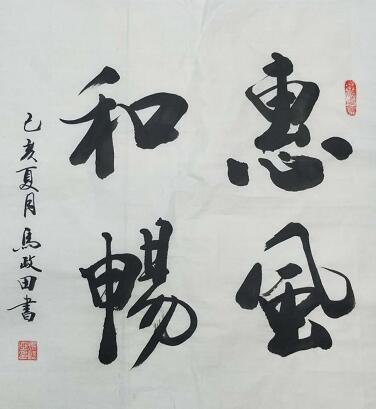 惠風
和暢
己亥夏月馬政田書